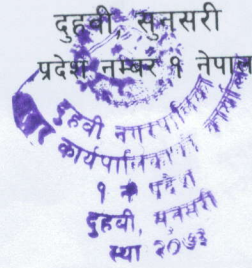 दुहवी, सुनसरी
प्रदेश नम्बर १ नेपाल
दुहवी नगरपालिका
कार्यपालिकाको कार्यालय
१ नं प्रदेश
दुहवी, सुनसरी
स्था २०७३